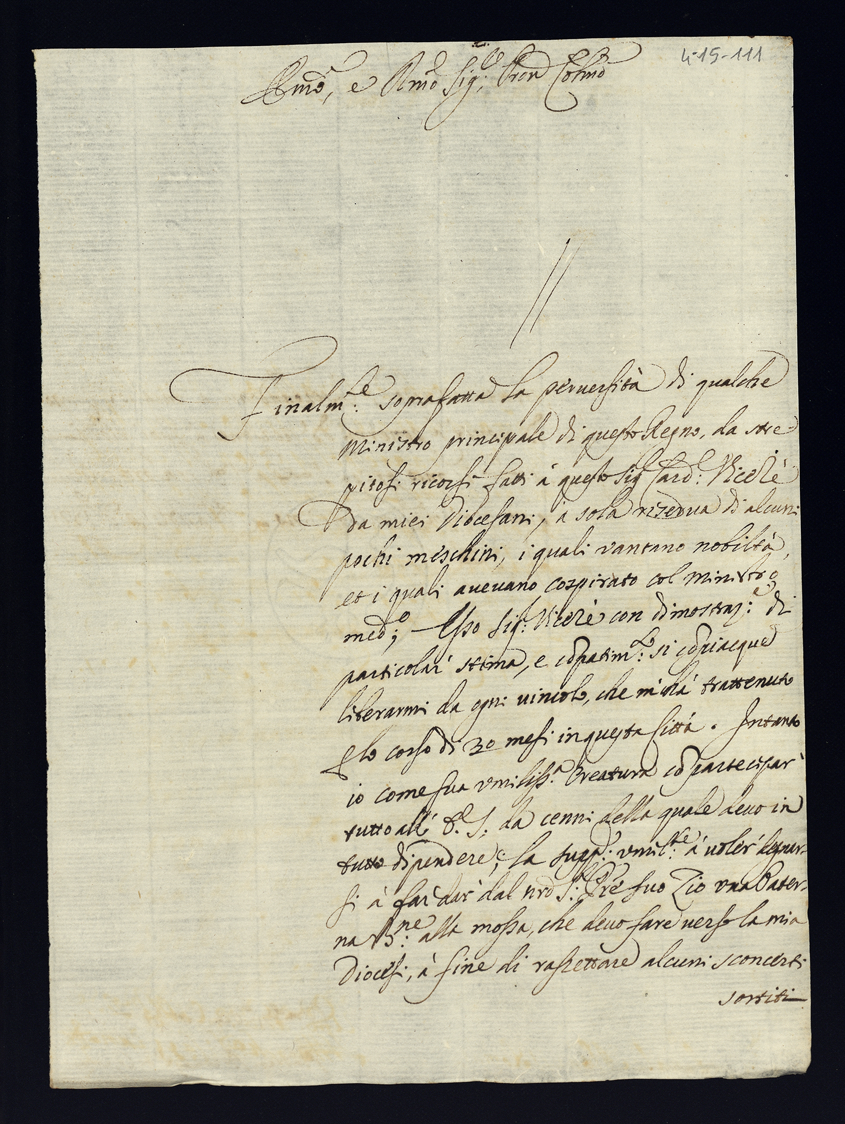 4-15-111
Illmo, e Rmo Sig.r Pron Colmo
Finalm.te soprafatta la peruersità di qualche
Ministro principale di questo Regno, da stre
pitosi ricorsi fatti à questo Sig.r Card.l Vicerè
da miei Diocesani, a sola riserua di alcuni
pochi meschini, i quali vantano nobiltà,
et i quali aueuano cospirato col Ministro
med.o; Esso Sig.r Vicerè con dimostraz.e di
particolar' stima, e cōpatim.to si cōpiacque
liberarmi da ogni uincolo, che m'hà trattenuto
p lo corso di 30 mesi in questa Città. Intanto
io come sua vmiliss.a Creatura cō partecipar'
tutto all' V.S. da cenni della quale deuo in
tutto dipendere, la supp.co vmilm.te à uoler' degnar-
si à far dar' dal nro S. Pre suo Zio vna Pater-
na B.ne alla mossa, che deuo fare uerso la mia
Diocesi, à fine di rassettare alcuni sconcerti
sortiti